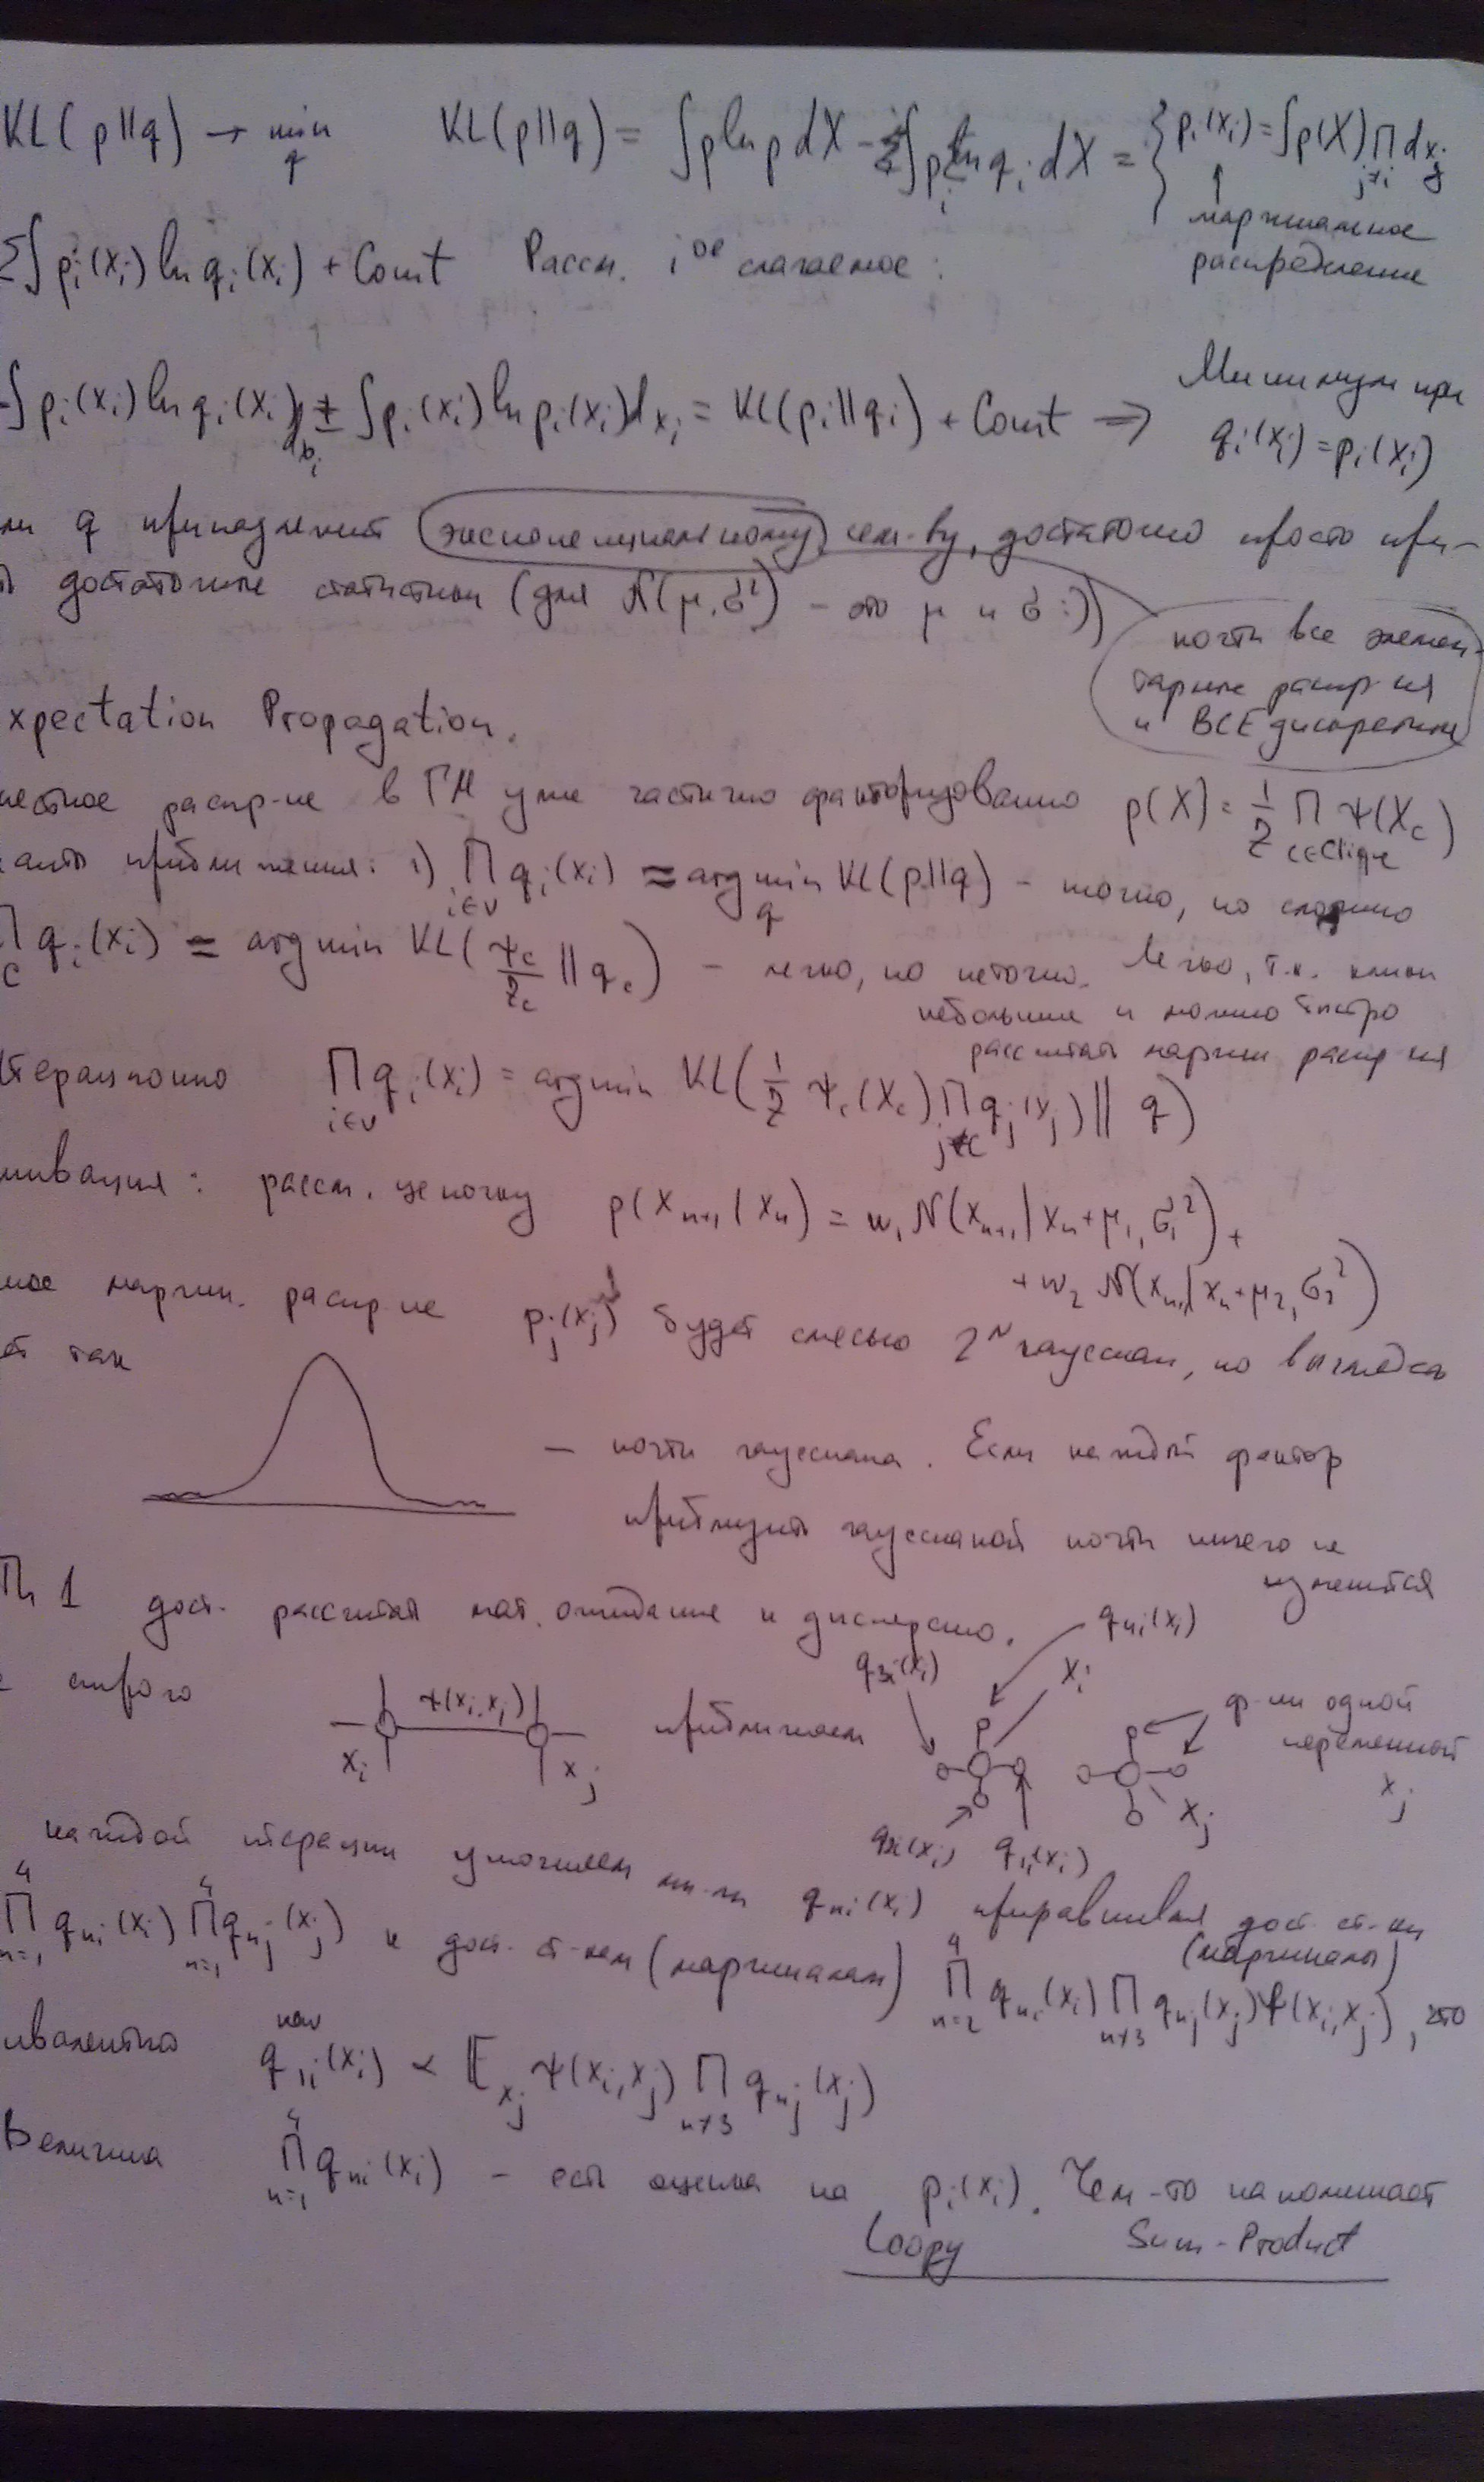 KL(p||q) → min_q KL(p||q) = ∫p ln p dX - ∫p Σ_i ln q_i dX = { p_i(x_i) = ∫p(X) ∏_{j≠i} dx_j
↑ маржинальное
распределение
Σ∫ p_i(x_i) ln q_i(x_i) + Const Рассм. i^ое слагаемое:
-∫ p_i(x_i) ln q_i(x_i) dx_i ± ∫ p_i(x_i) ln p_i(x_i) dx_i = KL(p_i||q_i) + Const ⇒ Минимум при
q_i(x_i) = p_i(x_i)
ли q принадлежит экспоненциальному сем-ву, достаточно просто при-
ь достаточные статистики (для N(μ,σ²) - это μ и σ :))
почти все элемен-
тарные распр-ия
и ВСЕ дискретные
xpectation Propagation.
местное распр-ие в ГМ уже частично факторизованно p(X) = 1/Z ∏_{c∈Clique} ψ(X_c)
анты приближения: 1) ∏_{i∈V} q_i(x_i) ≈ argmin_q KL(p||q) - точно, но сложно
∏_C q_i(x_i) ≈ argmin KL(ψ_c/Z_c || q_c) - легко, но неточно. Легко, т.к. клики
небольшие и можно быстро
рассчитать маржин распр-ия
терационно ∏_{i∈V} q_i(x_i) = argmin KL(1/Z ψ_c(X_c) ∏_{j∉C} q_j(x_j) || q)
ивация: рассм. цепочку p(x_{n+1}|x_n) = w_1 N(x_{n+1}|x_n+μ_1, σ_1²) +
+ w_2 N(x_{n+1}|x_n+μ_2, σ_2²)
ное маржин. распр-ие p_j(x_j) будет смесью 2^N гауссиан, но выглядеть
ет так
— почти гауссиана. Если каждый фактор
приблизить гауссианой почти ничего не
изменится
1 дост. рассчитать мат. ожидание и дисперсию.
строго ψ(x_i,x_j) x_i x_j приближаем
q_{3i}(x_i) q_{4i}(x_i) x_i
q_{2i}(x_i) q_{1i}(x_i)
ф-ии одной
переменной
x_j
x_j
каждой итерации уточняем q_{ni}(x_i) приравнивая дост. ст-ки
(маргиналы)
∏_{n=1}^4 q_{ni}(x_i) ∏_{n=1}^4 q_{nj}(x_j) к дост. ст-кам (маргиналам) ∏_{n=2}^4 q_{ni}(x_i) ∏_{n≠3} q_{nj}(x_j) ψ(x_i,x_j), это
ивалентно q_{1i}^{нов}(x_i) ∝ E_{x_j} ψ(x_i,x_j) ∏_{n≠3} q_{nj}(x_j)
Величина ∏_{n=1}^4 q_{ni}(x_i) - есть оценка на p_i(x_i). Чем-то напоминает
Loopy Sum-Product